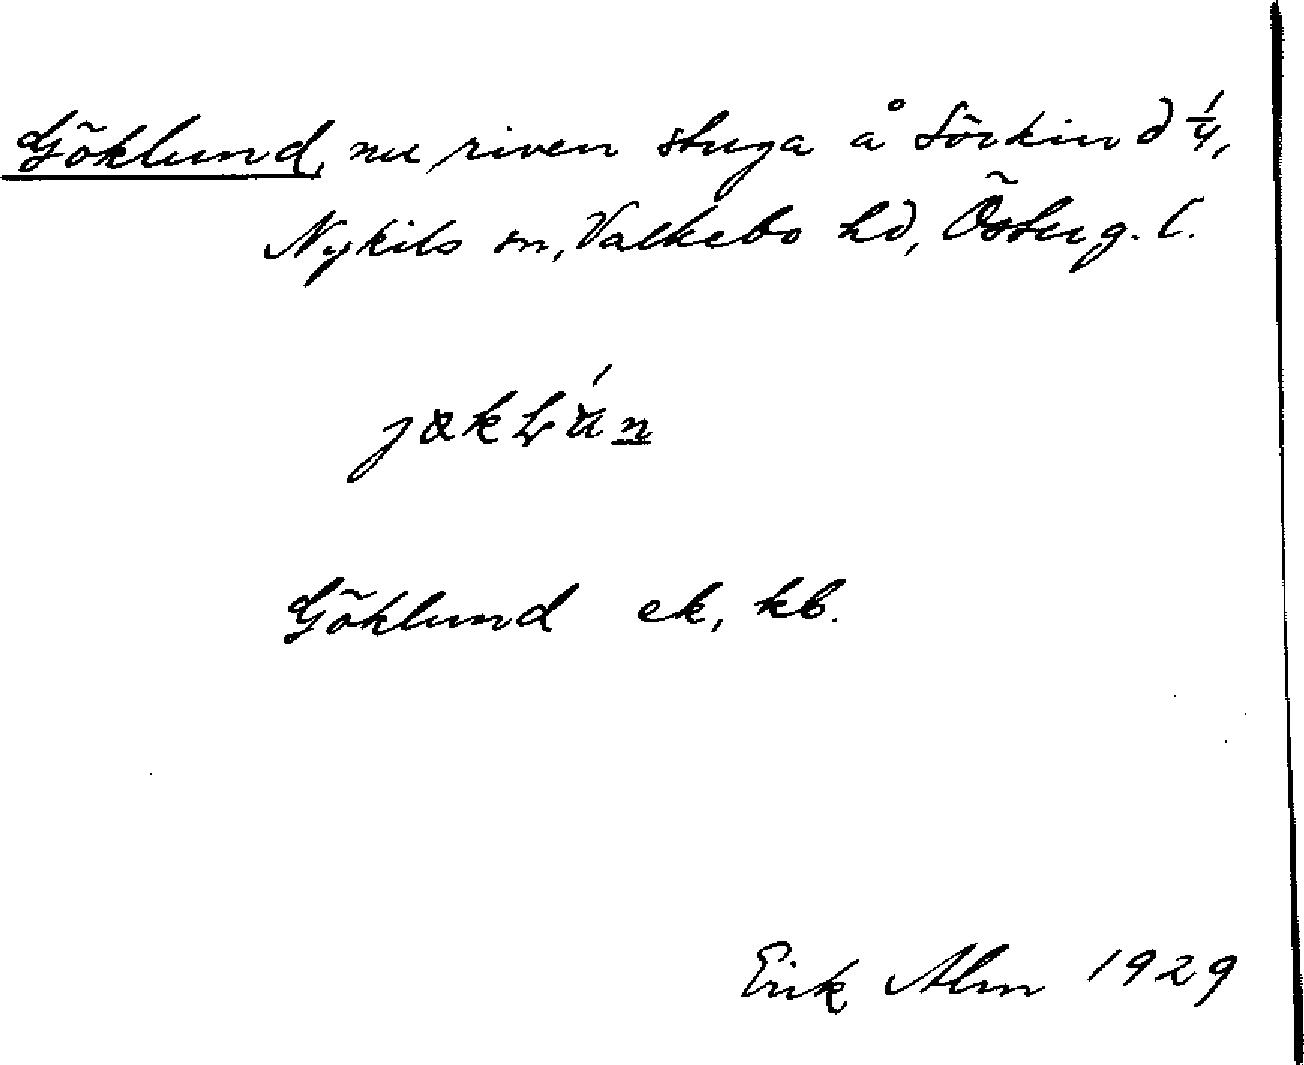 Göklund, nu riven stuga å Sörkind 1/4,
Nykils sn, Valkebo hd, Österg. l.
Göklund ek, kb.
Erik Alm 1929